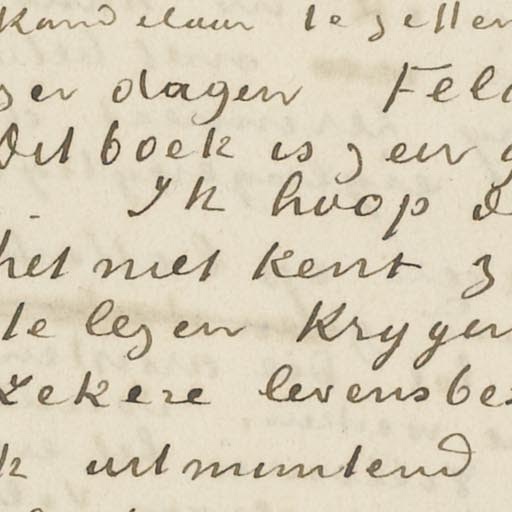 Kandelaar te zetten
zer dagen Feli
Dit boek is zeer g
Ik hoop d
het niet kent z
te lezen krygen
zekere levensbes
k uitmuntend